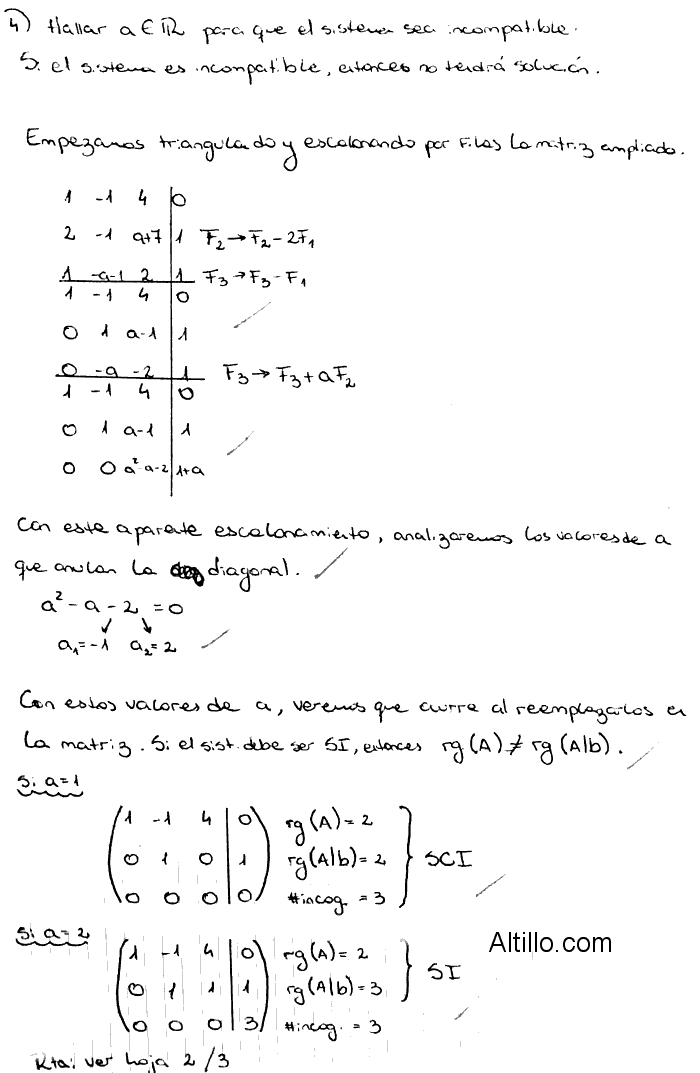 4) Hallar a ∈ ℝ para que el sistema sea incompatible.
Si el sistema es incompatible, entonces no tendrá solución.
Empezamos triangulando y escalonando por Filas la matriz ampliada.
1 -1 4 | 0
2 -1 a+7 | 1 F₂→F₂-2F₁
1 -a-1 2 | 1 F₃→F₃-F₁
1 -1 4 | 0
0 1 a-1 | 1
0 -a -2 | 1 F₃→F₃+aF₂
1 -1 4 | 0
0 1 a-1 | 1
0 0 a²-a-2 | 1+a
Con este aparente escalonamiento, analizaremos los valores de a
que anulan la diagonal.
a²-a-2=0
a₁=-1 a₂=2
Con estos valores de a, veremos que ocurre al reemplazarlos en
la matriz. Si el sist. debe ser SI, entonces rg(A)≠rg(A|b).
Si a=1
1 -1 4 | 0 rg(A)=2
0 1 0 | 1 rg(A|b)=2 } SCI
0 0 0 | 0 #incog.=3
Si a=2
Altillo.com
1 -1 4 | 0 rg(A)=2
0 1 1 | 1 rg(A|b)=3 } SI
0 0 0 | 3 #incog.=3
Rta: ver hoja 2/3